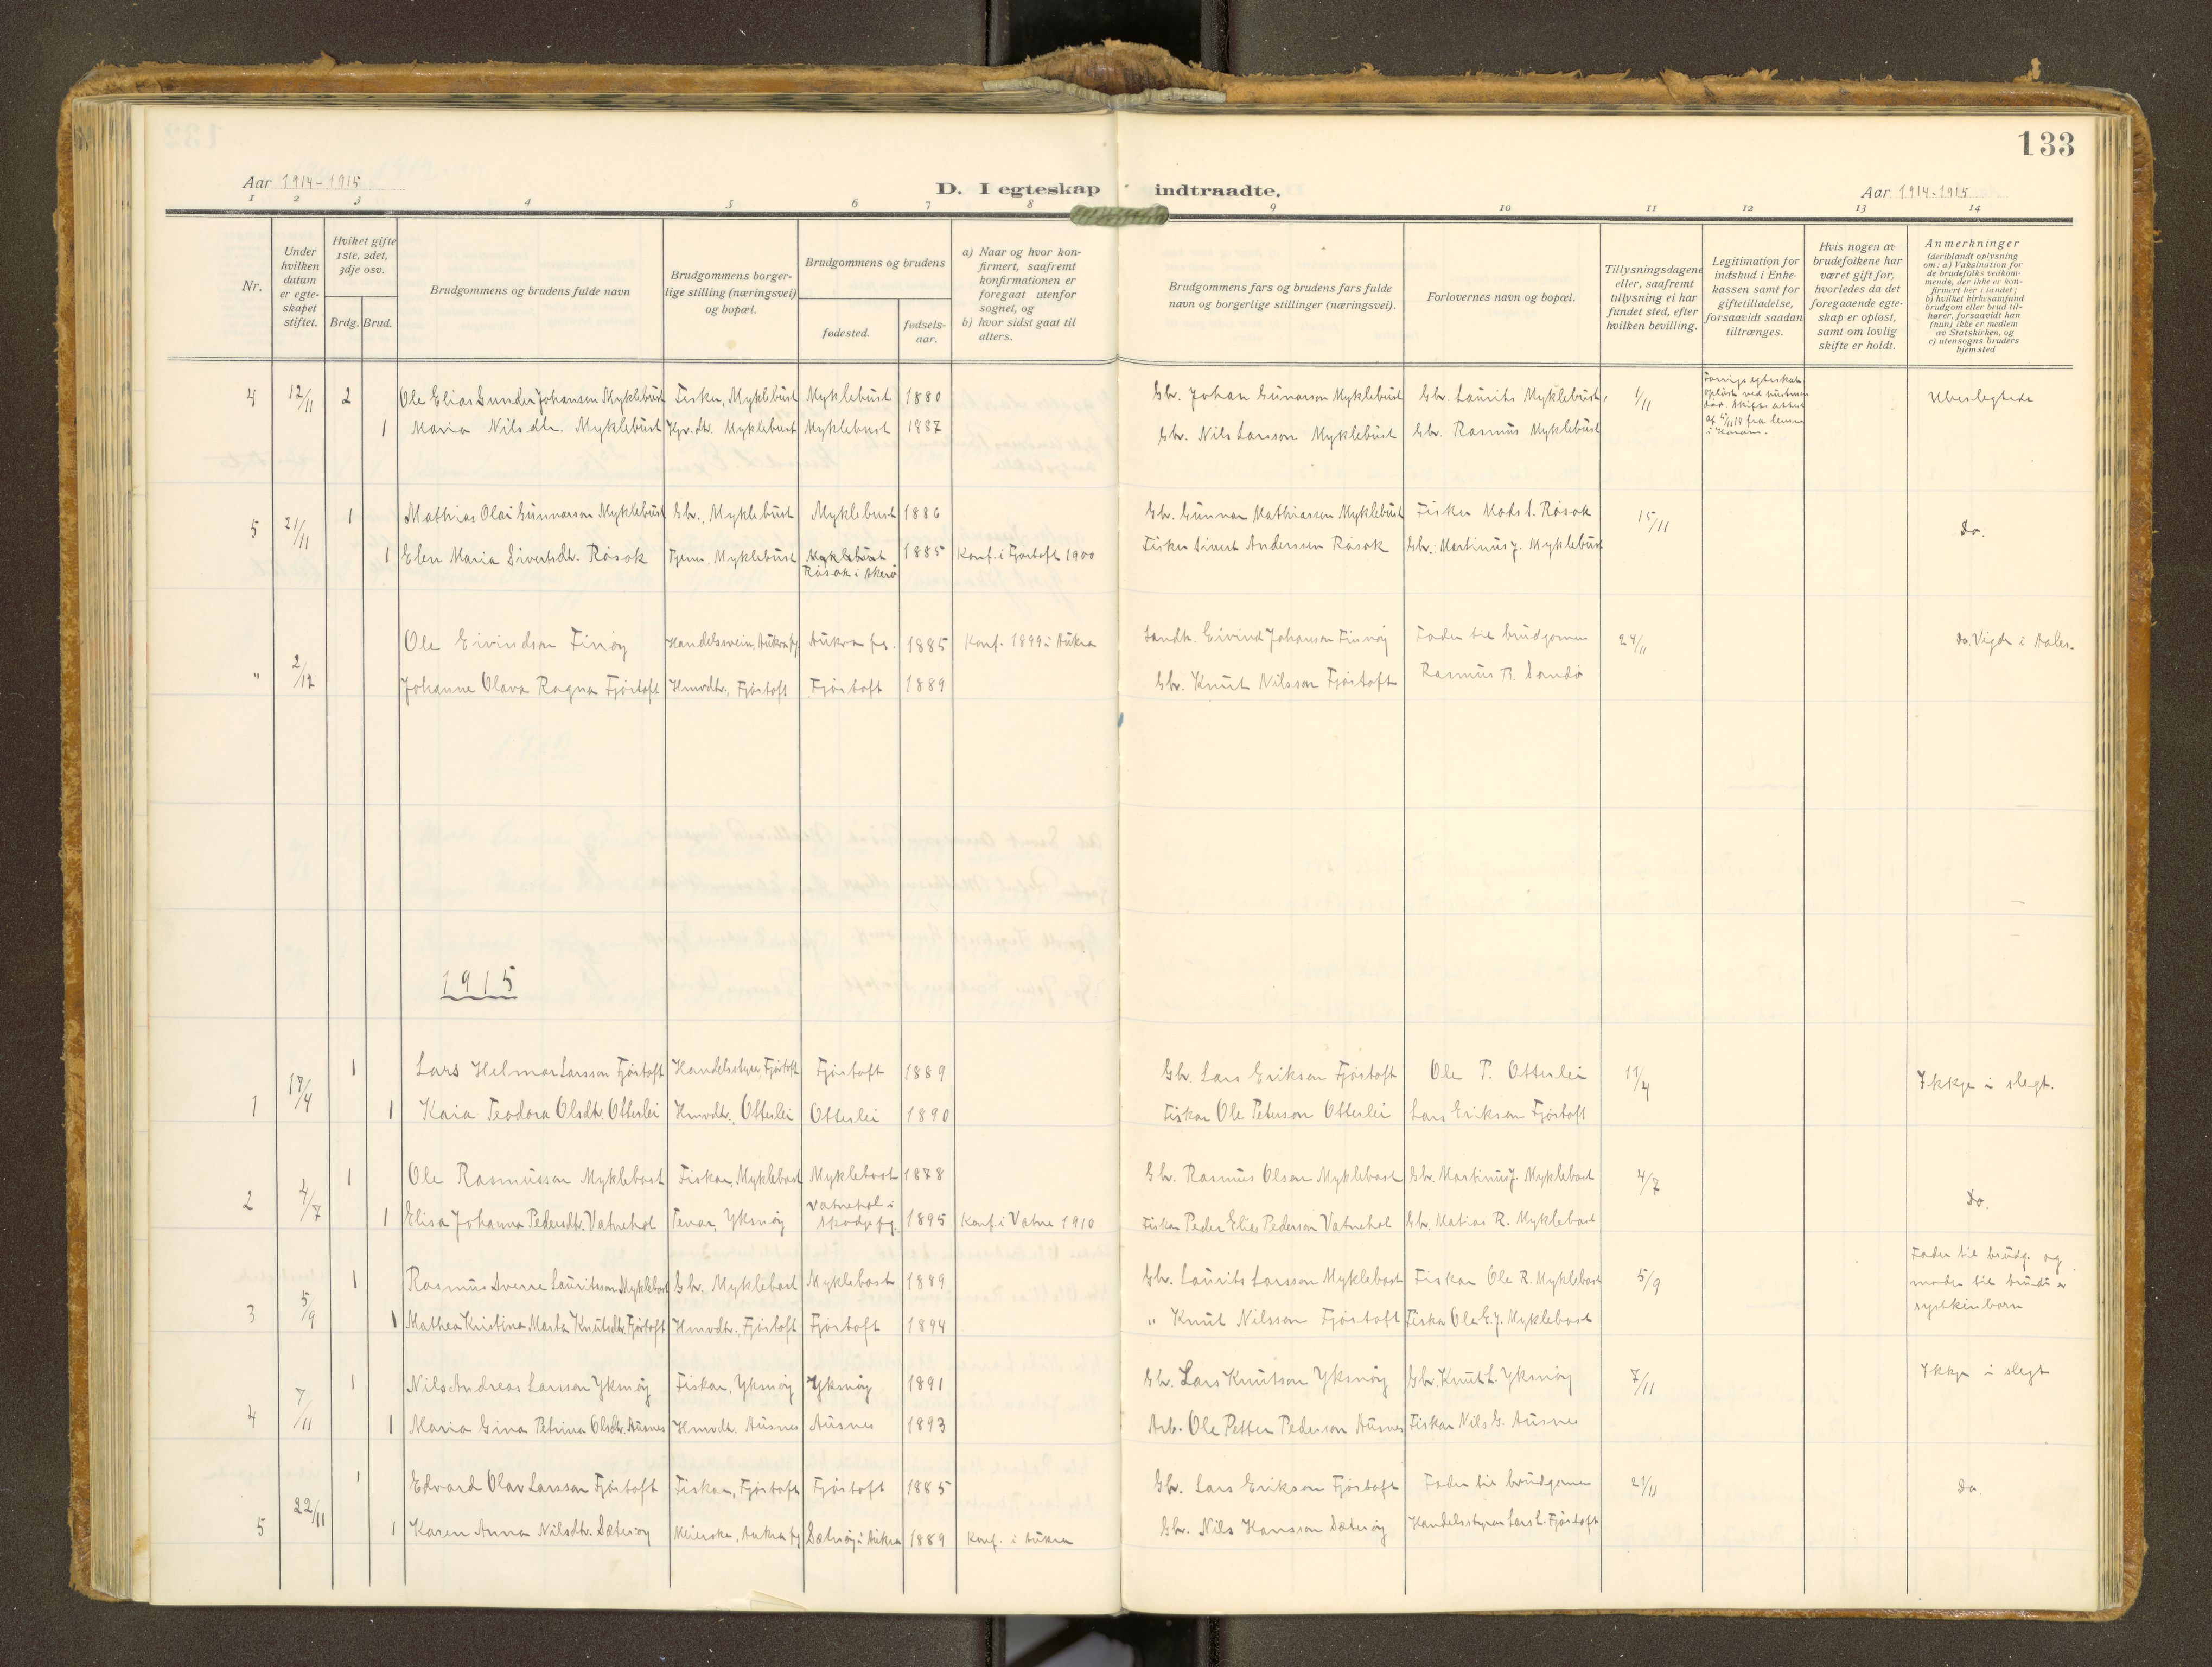 133
Aar 1914-1915
D. I egteskap indtraadte.
Aar 1914-1915
1 2 3 4 5 6 7 8 9 10 11 12 13 14
Nr.
Under hvilken datum er egteskapet stiftet.
Hviket gifte 1ste, 2det, 3dje osv.
Brdg. Brud.
Brudgommens og brudens fulde navn
Brudgommens borgerlige stilling (næringsvei) og bopæl.
Brudgommens og brudens
fødested.
fødselsaar.
a) Naar og hvor konfirmert, saafremt konfirmationen er foregaat utenfor sognet, og
b) hvor sidst gaat til alters.
Brudgommens fars og brudens fars fulde navn og borgerlige stillinger (næringsvei).
Forlovernes navn og bopæl.
Tillysningsdagene eller, saafremt tillysning ei har fundet sted, efter hvilken bevilling.
Legitimation for indskud i Enkekassen samt for giftetilladelse, forsaavidt saadan tiltrænges.
Hvis nogen av brudefolkene har været gift før, hvorledes da det foregaaende egteskap er opløst, samt om lovlig skifte er holdt.
Anmerkninger (deriblandt oplysning om: a) Vaksination for de brudefolks vedkommende, der ikke er konfirmert her i landet; b) hvilket kirkesamfund brudgom eller brud tilhører, forsaavidt han (hun) ikke er medlem av Statskirken, og c) utensogns bruders hjemsted
4 12/11 2 Ole Elias Gunder Johansen Myklebust Fisker, Myklebust Myklebust 1880 Gbr. Johan Gunarson Myklebust Gbr. Laurits Myklebust, 1/11 Forrige egteskab opløst ved hustruens død. Skifteattest af 5/11 14 fra lensm. i Haram. Ubeslegtede
1 Maria Nils dtr. Myklebust Myklebust Myklebust 1887 Gbr. Nils Larsson Myklebust Gbr. Rasmus Myklebust
5 21/11 1 Mathias Olai Gunnarson Myklebust Gbr., Myklebust Myklebust 1886 Gbr. Gunnar Mathiassen Myklebust Fisker Mads S. Røsok 15/11 Do.
1 Elen Maria Sivertsdtr. Røsok Tjener, Myklebust Myklebust Røsok i Akerø 1885 Konf. i Fjørtoft 1900 Fisker Sivert Anderssen Røsok Gbr. Martinus J. Myklebust
" 2/12 Ole Eivindson Finøy Aukra pg. Aukra pg. 1885 Konf. 1899 i Aukra Landh. Eivind Johanson Finnøy Fader til brudgomen 24/11 do. Vigde i Aales.
Johanne Olava Ragna Fjørtoft Hmvdtr, Fjørtoft Fjørtoft 1889 Gbr. Knut Nilsson Fjørtoft Rasmus B. Sandø
1915
1 17/4 1 Lars Helmar Larsson Fjørtoft Handelsstyrer, Fjørtoft Fjørtoft 1889 Gbr. Lars Erikson Fjørtoft Ole P. Otterlei 11/4 Ikkje i slegt.
1 Kaia Teodora Olsdtr. Otterlei Hmvdtr., Otterlei Otterlei 1890 Fiskar Ole Peterson Otterlei Lars Erikson Fjørtoft
2 4/7 1 Ole Rasmusson Myklebost Fiskar, Myklebost Myklebost 1878 Gbr. Rasmus Olson Myklebost Gbr. Martinus J. Myklebost 4/7 Do.
1 Elisa Johanna Pedersdtr. Vatnehol Tenar, Yksnøy Vatnehol i Skodje pg. 1895 Konf. i Vatne 1910 Fiskar Peder Elias Pederson Vatnehol Gbr. Matias R. Myklebost
3 5/9 1 Rasmus Sverre Lauritsson Myklebost Gbr. Myklebost Myklebost 1889 Gbr. Laurits Larsson Myklebost Fiskar Ole R. Myklebost 5/9 Fader til brudg. og moder til brudi er syskinborn
1 Mathea Kristina Marta Knutsdtr. Fjørtoft Hmvdtr. Fjørtoft Fjørtoft 1894 " Knut Nilsson Fjørtoft Fiskar Ole E. J. Myklebost
4 7/11 1 Nils Andreas Larsson Yksnøy Fiskar, Yksnøy Yksnøy 1891 Gbr. Lars Knutson Yksnøy Gbr. Knut L. Yksnøy 7/11 Ikkje i slegt
1 Maria Gina Petrina Olsdtr. Ausnes Hmvdtr. Ausnes Ausnes 1893 Arb. Ole Petter Pederson Ausnes Fiskar Nils G. Ausnes
5 22/11 1 Edvard Olav Larsson Fjørtoft Fiskar, Fjørtoft Fjørtoft 1885 Gbr. Lars Erikson Fjørtoft Fader til brudgomen 21/11 do
1 Karen Anna Nilsdtr. Sætersøy Meierske, Aukra pg. i Aukra 1889 Konf. i Aukra Gbr. Nils Hansson Sætersøy Handelsstyrar Lars L. Fjørtoft